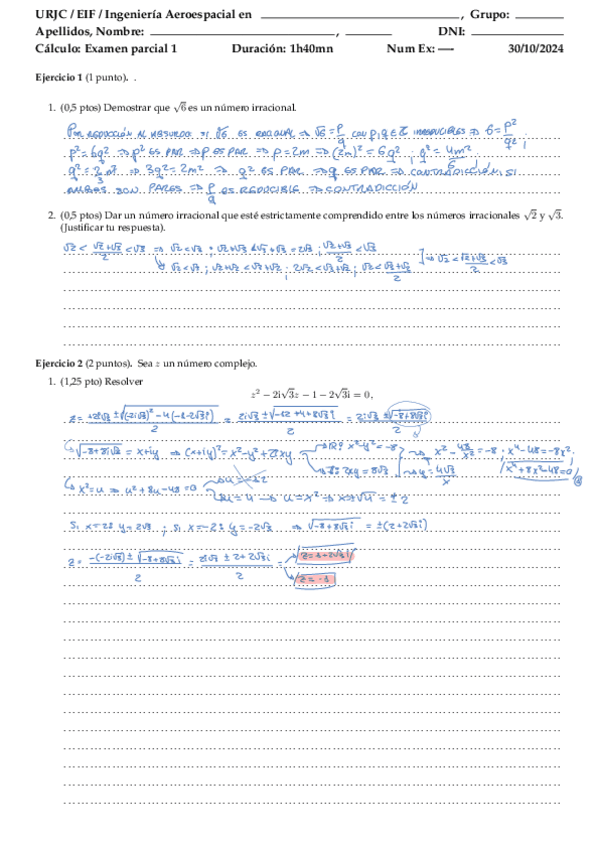 URJC / EIF / Ingeniería Aeroespacial en ________, Grupo: ________
Apellidos, Nombre: ________, ________ DNI: ________
Cálculo: Examen parcial 1 Duración: 1h40mn Num Ex: —- 30/10/2024
Ejercicio 1 (1 punto). .
1. (0,5 ptos) Demostrar que √6 es un número irracional.
POR REDUCCIÓN AL ABSURDO: SI √6 ES RACIONAL ⇒ √6 = p/q CON p,q ∈ Z IRREDUCIBLES ⇒ 6 = p²/q² ;
p² = 6q² ⇒ p² ES PAR ⇒ p ES PAR ⇒ p = 2m ⇒ (2m)² = 6q² ; q² = 4m²/6 ;
q² = 2/3 m² ⇒ 3q² = 2m² ⇒ q² ES PAR ⇒ q ES PAR ⇒ CONTRADICCIÓN, SI
AMBOS SON PARES ⇒ p/q ES REDUCIBLE ⇒ CONTRADICCIÓN
2. (0,5 ptos) Dar un número irracional que esté estrictamente comprendido entre los números irracionales √2 y √3.
(Justificar tu respuesta).
√2 < (√2+√3)/2 < √3 ⇒ √2 < √3 ; √2+√3 < √3+√3 = 2√3 ; (√2+√3)/2 < √3
√2 < √3 ; √2+√2 < √2+√3 ; 2√2 < √3+√2 ; √2 < (√2+√3)/2 → √2 < (√2+√3)/2 < √3
Ejercicio 2 (2 puntos). Sea z un número complejo.
1. (1,25 pto) Resolver
z² − 2i√3z − 1 − 2√3i = 0,
z = (+2i√3 ± √((-2i√3)² - 4(-1-2√3i)))/2 = (2i√3 ± √(-12+4+8√3i))/2 = (2i√3 ± √(-8+8√3i))/2
√(-8+8i√3) = x+iy ⇒ (x+iy)² = x²-y²+2ixy → x²-y² = -8 → x² - 48/x² = -8 ; x⁴-48 = -8x² ;
2xy = 8√3 → y = 4√3/x x⁴+8x²-48=0
x² = u ⇒ u²+8u-48=0 → u = -12
u = 4 → u = x² ⇒ x = √4 = ±2
Si x=2 y=2√3 ; Si x=-2 y=-2√3 ⇒ √(-8+8√3i) = ±(2+2√3i)
z = (-(-2i√3) ± √(-8+8√3i))/2 = (2i√3 ± 2+2√3i)/2 = z = 1+2√3i
z = -1